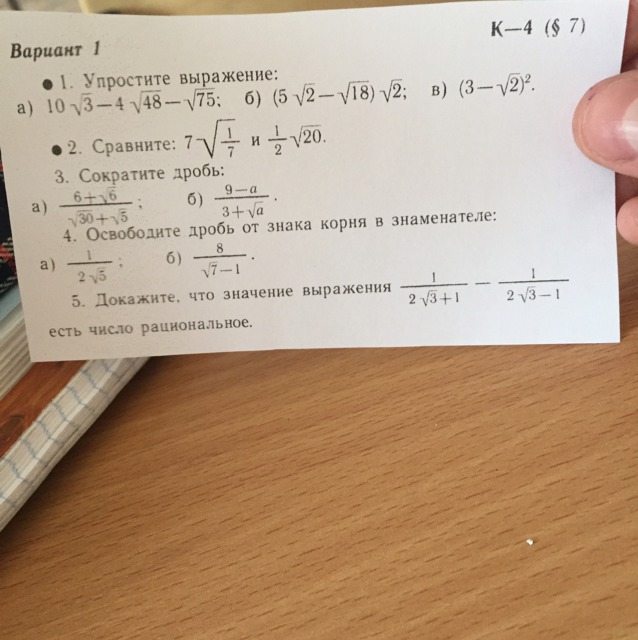 К—4 (§ 7)
Вариант 1
● 1. Упростите выражение:
а) 10 √3 — 4 √48 — √75; б) (5 √2 — √18) √2; в) (3 — √2)².
● 2. Сравните: 7 √(1/7) и 1/2 √20.
3. Сократите дробь:
а) (6+√6)/(√30+√5); б) (9—a)/(3+√a).
4. Освободите дробь от знака корня в знаменателе:
а) 1/(2 √5); б) 8/(√7—1).
5. Докажите, что значение выражения 1/(2 √3+1) — 1/(2 √3—1)
есть число рациональное.